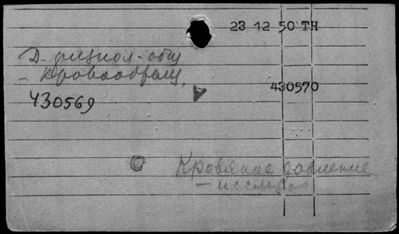 23 12 50 ТН
Д. физиол-общ
- кровообращ.
430569
430570
А
Кровяное давление
- исслед